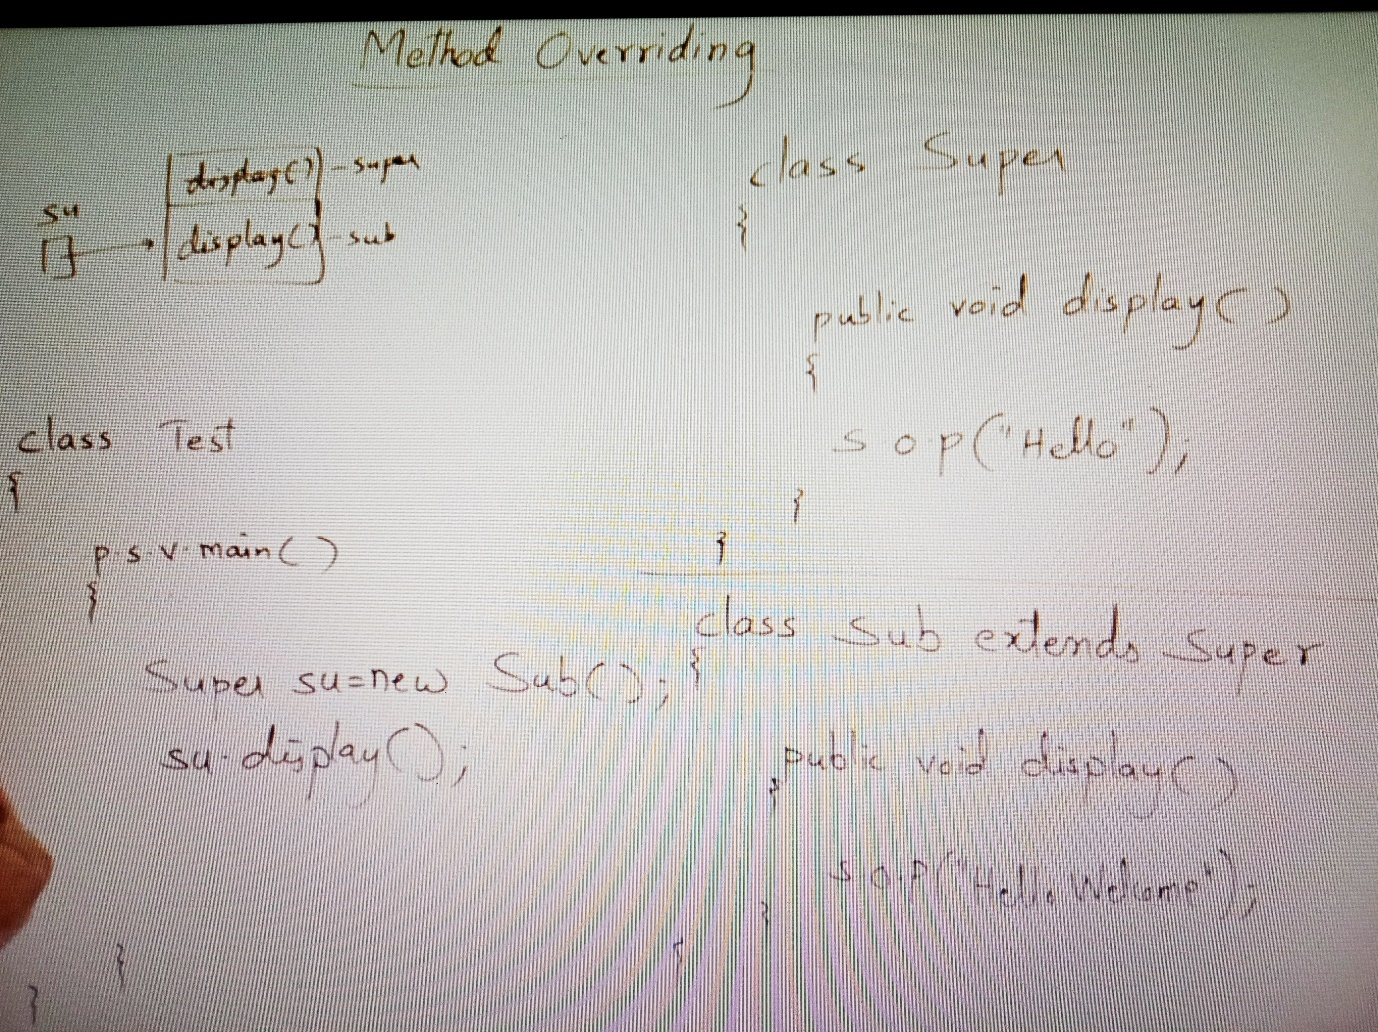 Method Overriding
display() - super
su
display() - sub
class Test
{
p.s.v.main()
{
Super su=new Sub();
su.display();
}
}
class Super
{
public void display()
{
s o p("Hello");
}
}
class Sub extends Super
{
public void display()
{
s o p("Hello Welcome");
}
}